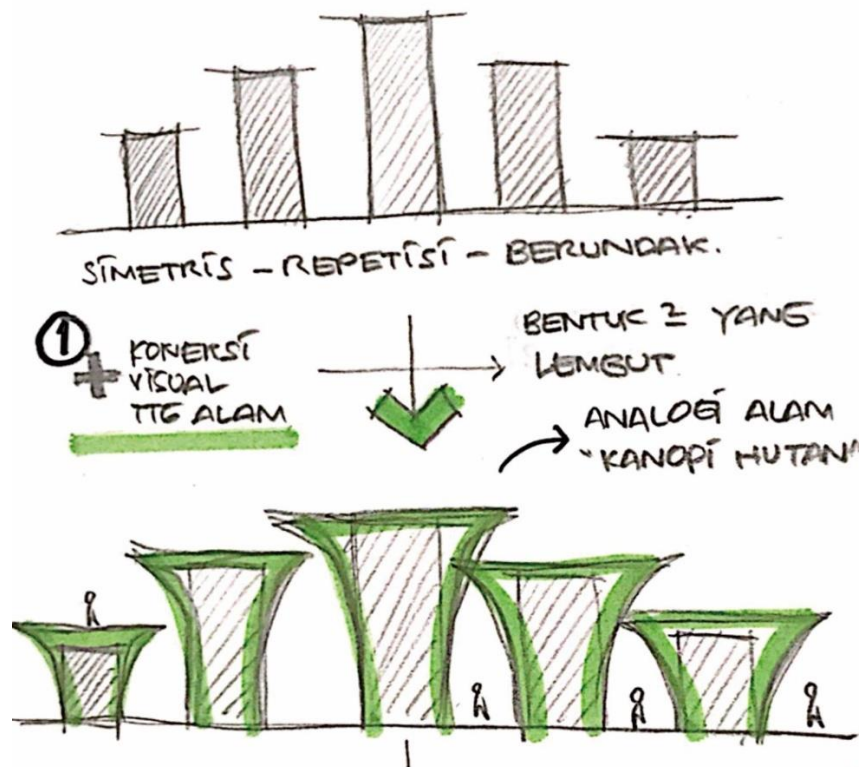 SIMETRIS - REPETISI - BERUNDAK.
1
+ KONEKSI
VISUAL
TTG ALAM
BENTUK 2 YANG
LEMBUT
ANALOGI ALAM
"KANOPI HUTAN"